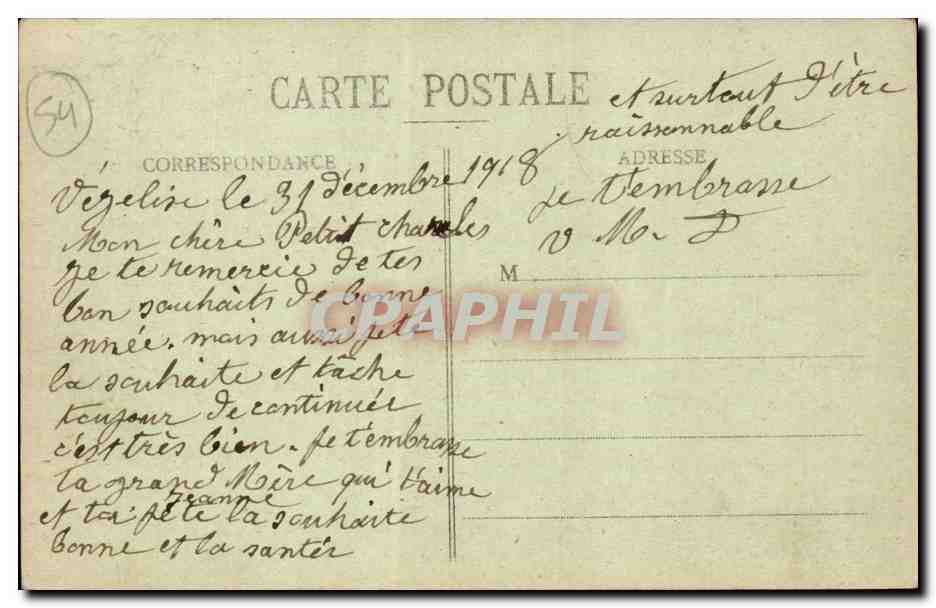 54
CARTE POSTALE
CORRESPONDANCE
Vézelise le 31 décembre 1918
Mon chère Petit charles
je te remercie de tes
bon souhaits de bonne
année. mais aussi je te
la souhaite et tâche
toujour de continuér
c'est très bien. Je t'embrasse
ta grand Mère qui t'aime
et toi Jeanne je te la souhaite
bonne et la santér
ADRESSE
et surtout d'être
raissonnable
Je t'embrasse
v M. D
M
CPAPHIL